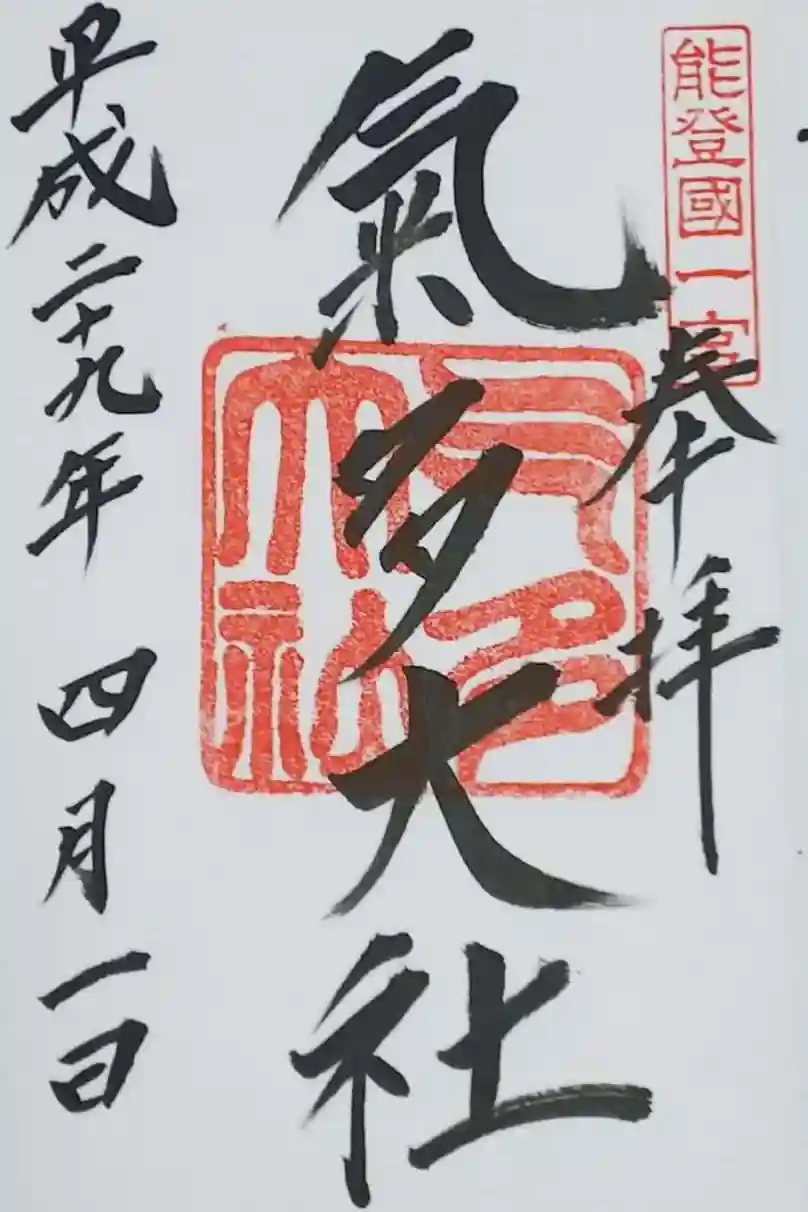 能登國一宮
奉拝
氣多大社
氣多大社
平成二十九年 四月一日